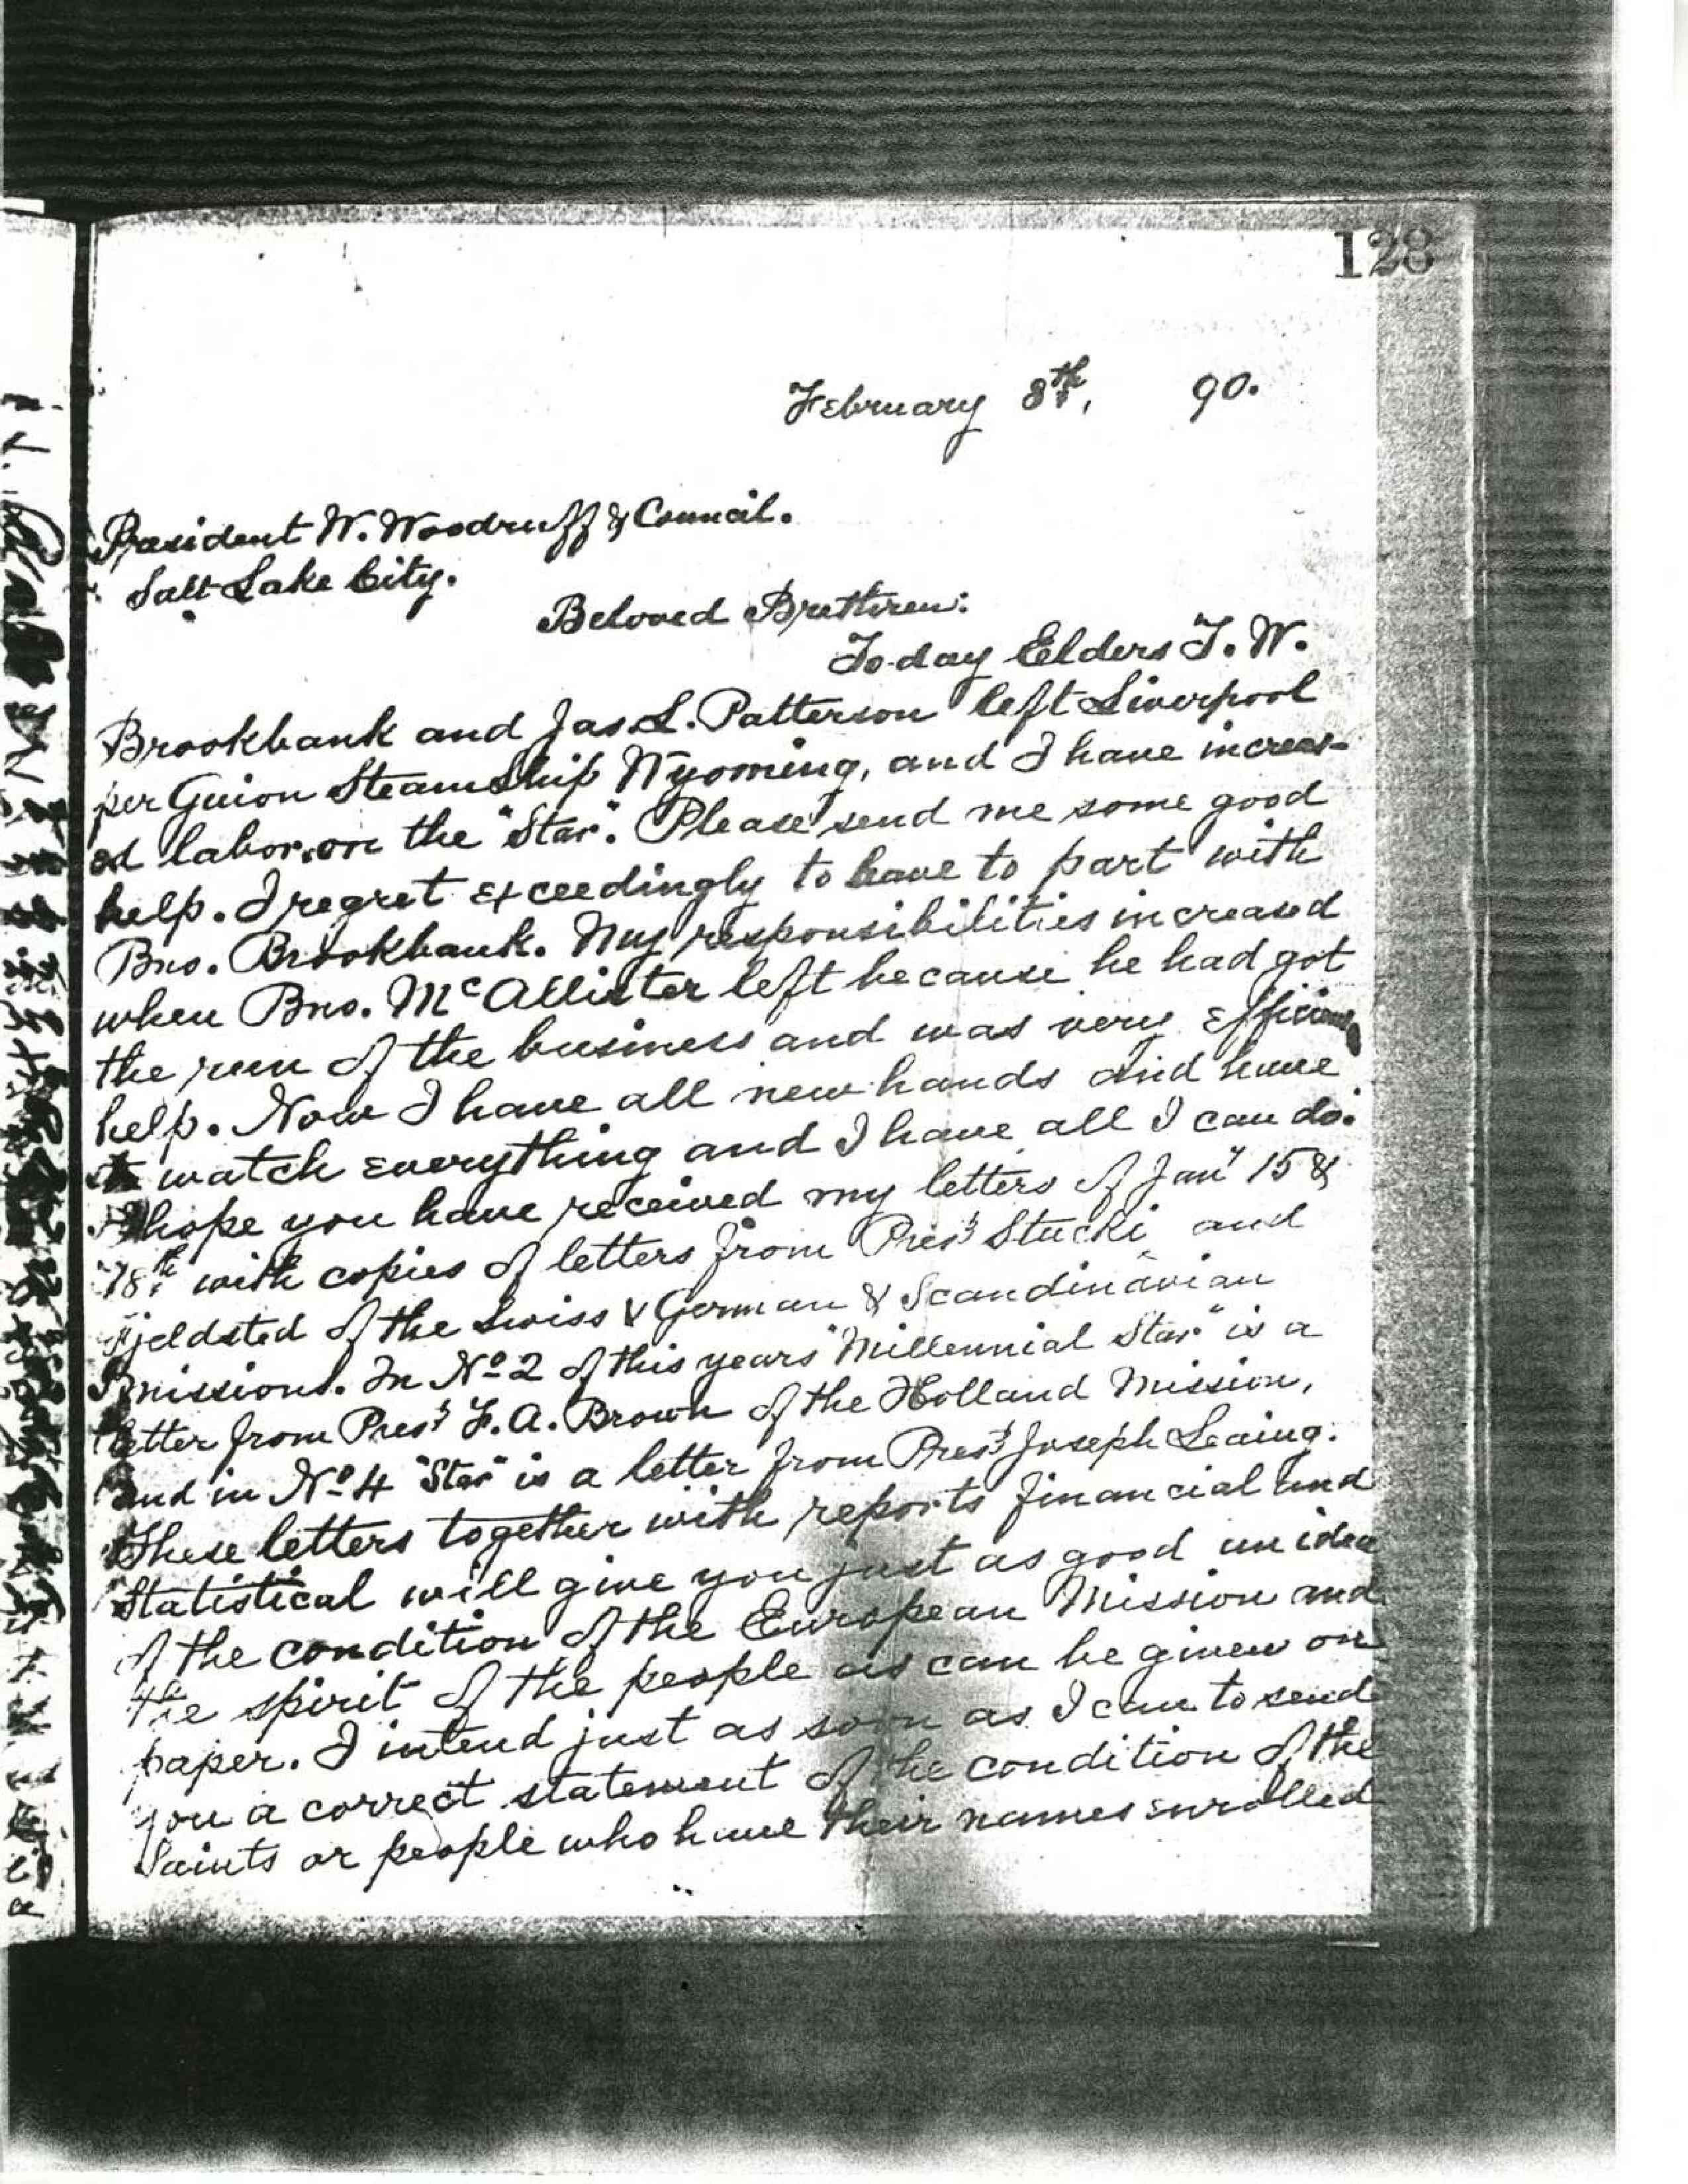 128
February 8th, 90.
President W. Woodruff & Council.
Salt Lake City.
Beloved Brethren:
To-day Elders T. W.
Brookbank and Jas L. Patterson left Liverpool
per Guion SteamShip Wyoming, and I have increas-
ed labor on the "Star". Please send me some good
help. I regret exceedingly to have to part with
Bro. Brookbank. My responsibilities increased
when Bro. McAllister left because he had got
the run of the business and was very efficient
help. Now I have all new hands and have
to watch everything and I have all I can do.
I hope you have received my letters of Jany 15 &
18th with copies of letters from Prests Stucki and
Fjeldsted of the Swiss & German & Scandinavian
missions. In No 2 of this years "Millennial Star" is a
letter from Prest F. A. Brown of the Holland Mission,
and in No 4 "Star" is a letter from Prest Joseph Leaing.
These letters together with reports financial and
Statistical will give you just as good an idea
of the condition of the European Mission and
the spirit of the people as can be given on
paper. I intend just as soon as I can to send
you a correct statement of the condition of the
Saints or people who have their names enrolled